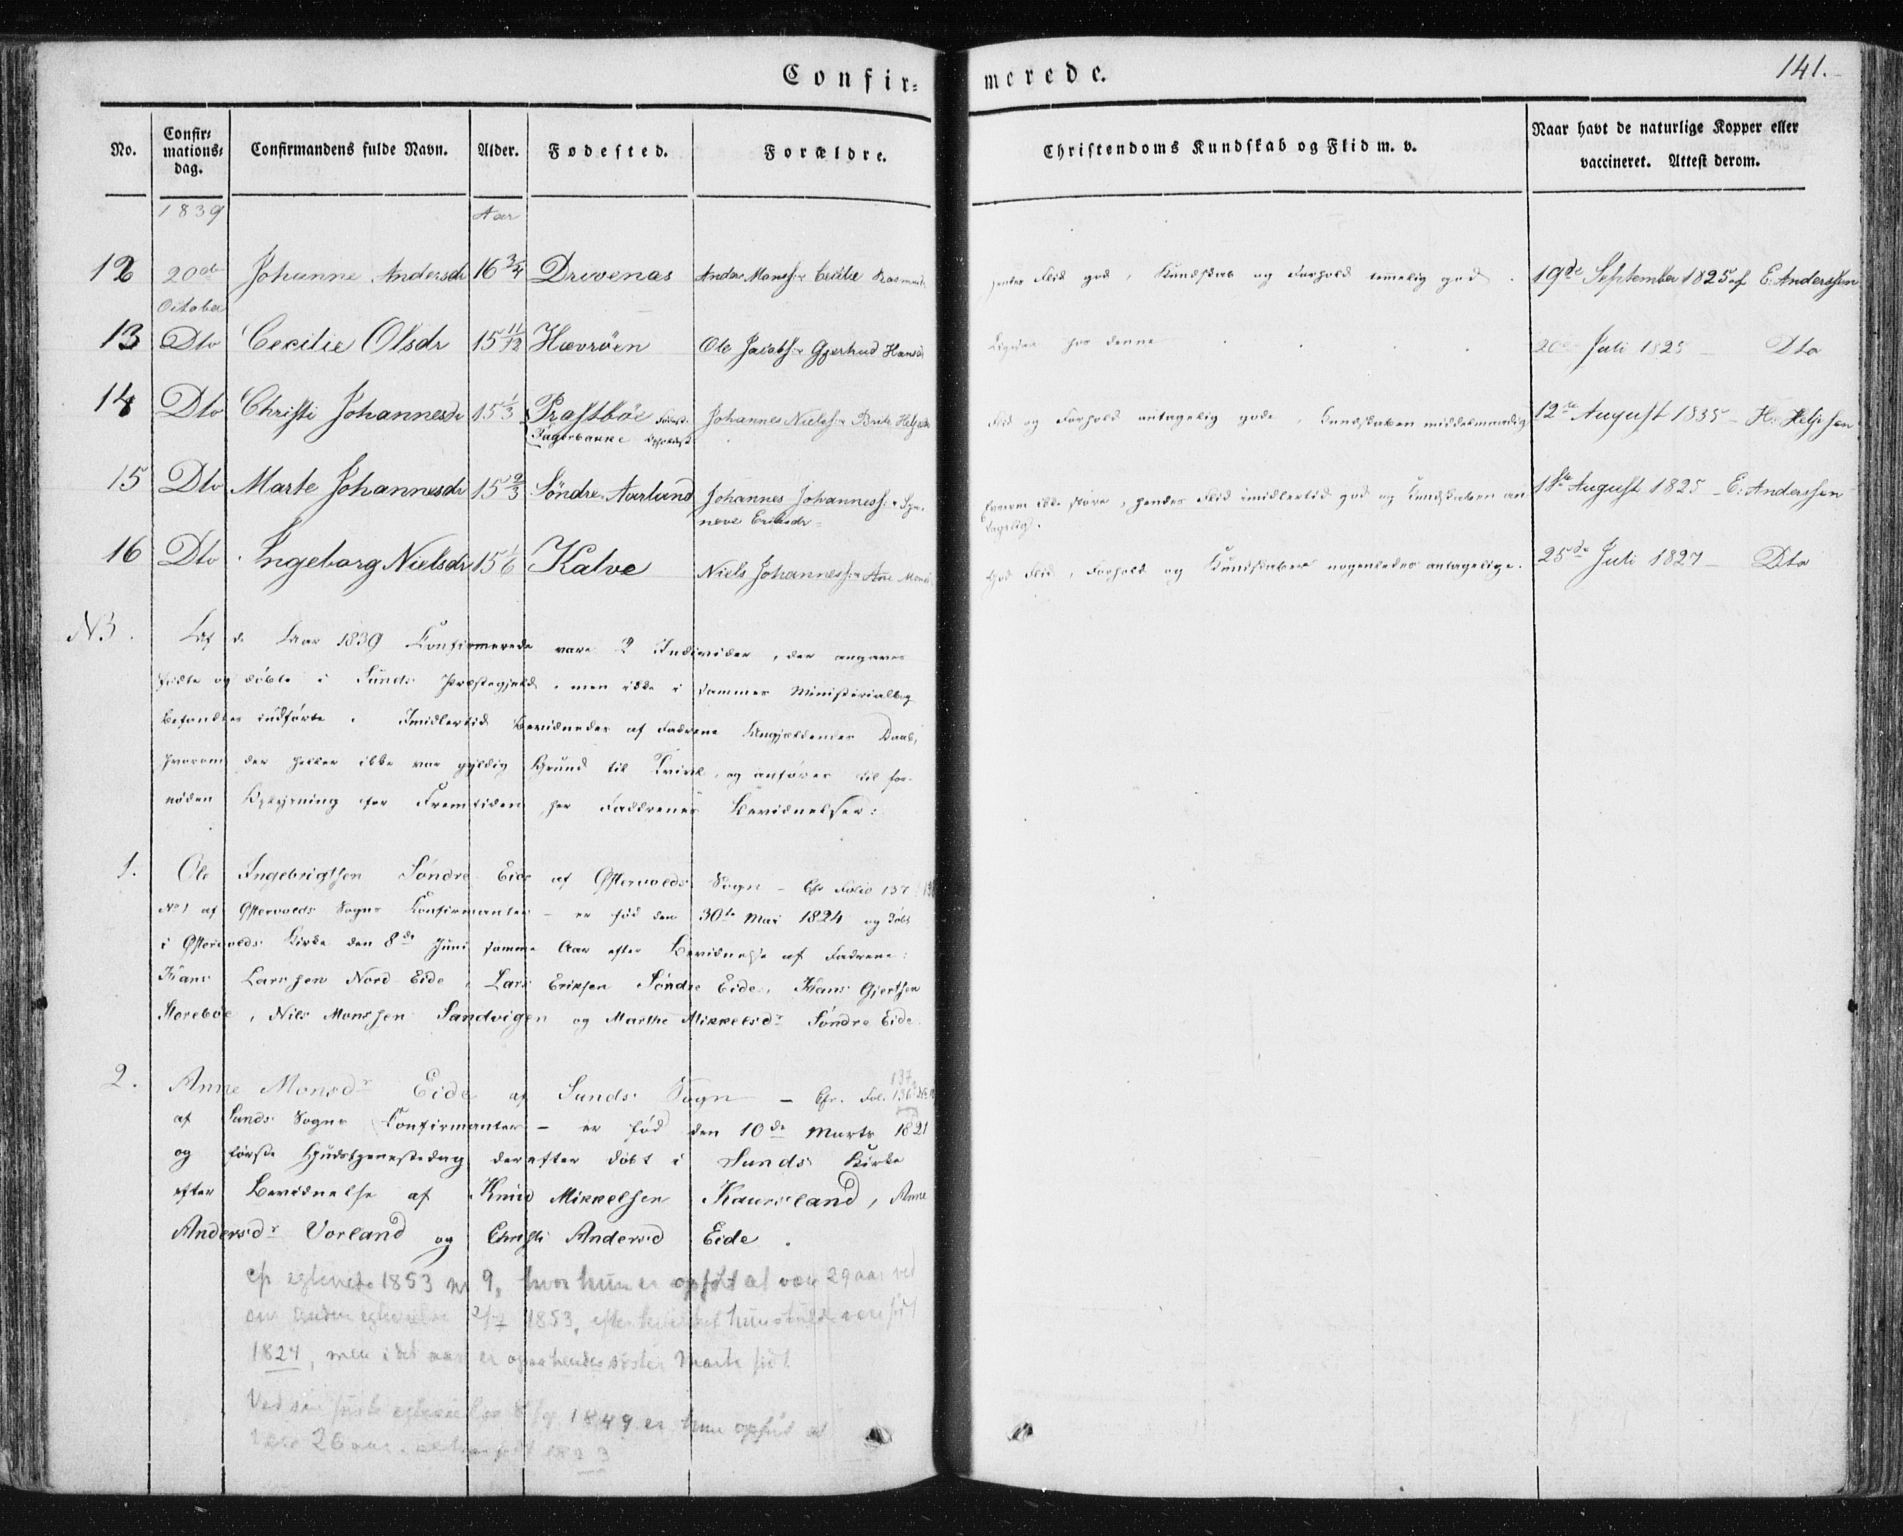 Confir- merede. 141.
No. Confir-mations-dag. Confirmandens fulde Navn. Alder. Fødested. Forældre. Christendoms Kundskab og Flid m. v. Naar havt de naturlige Kopper eller vaccineret. Attest derom.
1839 Aar
12 20de October Johanne Andersdr 16 3/4 Drivenæs Anders Monss: Cecilie Rasmusd. Flid god, Kundskab og Forhold temmelig god. 19de September 1825 af E. Anderssen
13 Dto Cecilie Olsdr 15 11/12 Hævröen Ole Jacobs: Gjertrud Hansd. Ligesaa for denne 20de Juli 1825 – Dto
14 Dto Christi Johannesdr 15 1/3 Præstbøe Fødest. Johannes Niels: Brite Helgesdr Flid og Forhold antagelig gode, Kundskaben middelmaadig 12te August 1835 – H. Helgesen
Fagerbakke Opholdst.
15 Dto Marte Johannesdr 15 2/3 Söndre Aarland Johannes Johanness: Syn- Evnerne ikke store, hendes Flid imidlertid god og Kundskaben an- 18de August 1825 – E. Anderssen
neve Eriksdr tagelig.
16 Dto Ingeborg Nielsdr 15 1/6 Kalve Niels Johanness: Ane Monsd. God Flid, Forhold og Kundskaber nogenledes antagelige. 25de Juli 1827 – Dto
NB. Af de i Aar 1839 Confirmerede vare 2 Individer, der angaves
fødte og döbte i Sunds Præstegjeld, men ikke i sammes Ministerialbog
befandtes indførte. Imidlertid bevidnedes af Fadderne Angjældendes Daab,
hvorom der heller ikke var gyldig Grund til Tvivl, og anføres til for-
nöden Oplysning for Fremtiden her Faddernes Bevidnelser:
1. Ole Ingebrigtsen Söndre Eide af Østervolds Sogn – Cfr Folio 137
No 1 af Østervolds Sogns Confirmanter – er född den 30te Mai 1824 og döbt
i Østervolds Kirke den 8de Juni samme Aar efter Bevidnelse af Fadderne:
Hans Larssen Nord Eide, Lars Eriksen Söndre Eide, Hans Gjertsen
Storeböe, Nils Monssen Sandvigen og Marthe Mikkelsdr Söndre Eide.
2. Anne Monsdr Eide af Sunds Sogn – Cfr. Fol. 136 137
af Sunds Sogns Confirmanter – er född den 10de Marts 1821
og første Gudstjenestedag derefter döbt i Sunds Kirke
efter Bevidnelse af Knud Mikkelsen Kausland, Anne
Andersdr Vorland og Christi Andersd Eide.
cfr egteviede 1853 nr 9, hvor hun er opført at være 29 aar ved
sin anden egtevielse 2/7 1853, efter hvilket hun skulde være født
1824, men i det aar er ogsaa hendes søster Marte født
Ved sin første egtevielse 1849 er hun opført at
være 26 aar, altsaa født 1823